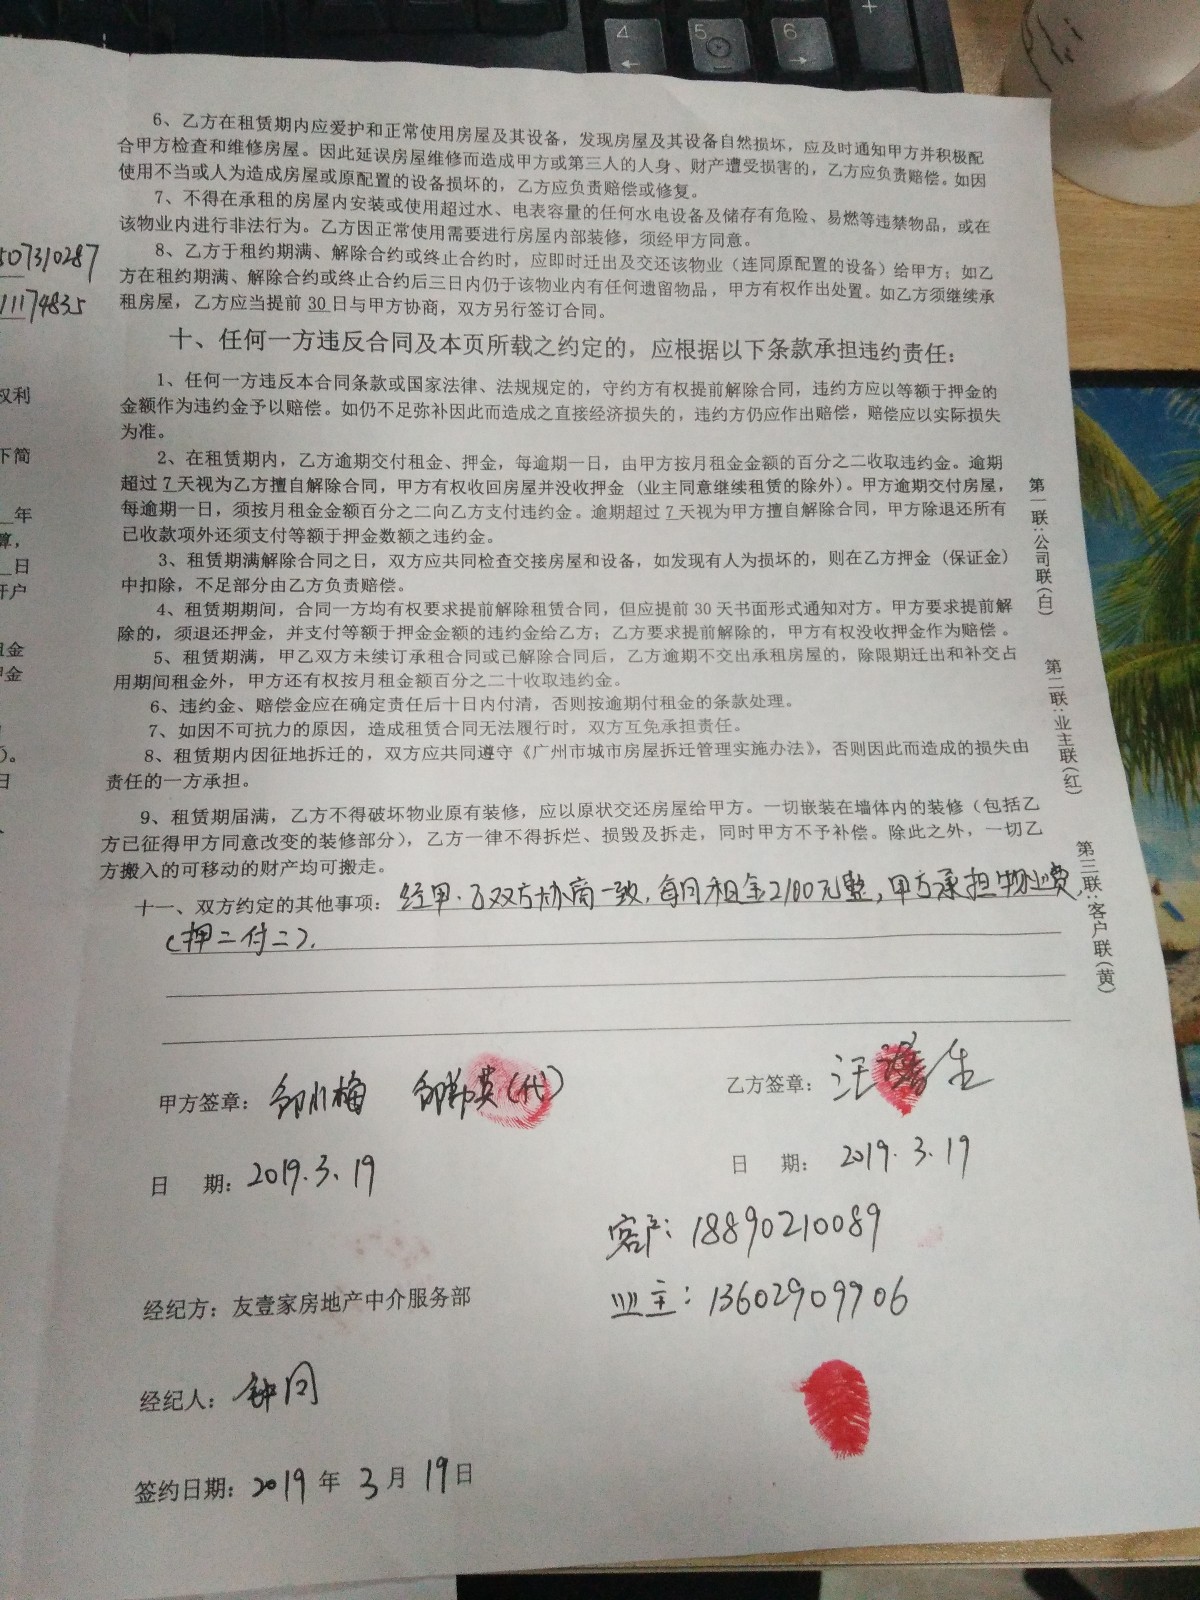 4
5
6
+
←
→
6、乙方在租赁期内应爱护和正常使用房屋及其设备，发现房屋及其设备自然损坏，应及时通知甲方并积极配
合甲方检查和维修房屋。因此延误房屋维修而造成甲方或第三人的人身、财产遭受损害的，乙方应负责赔偿。如因
使用不当或人为造成房屋或原配置的设备损坏的，乙方应负责赔偿或修复。
7、不得在承租的房屋内安装或使用超过水、电表容量的任何水电设备及储存有危险、易燃等违禁物品，或在
该物业内进行非法行为。乙方因正常使用需要进行房屋内部装修，须经甲方同意。
8、乙方于租约期满、解除合约或终止合约时，应即时迁出及交还该物业（连同原配置的设备）给甲方；如乙
方在租约期满、解除合约或终止合约后三日内仍于该物业内有任何遗留物品，甲方有权作出处置。如乙方须继续承
租房屋，乙方应当提前 30 日与甲方协商，双方另行签订合同。
十、任何一方违反合同及本页所载之约定的，应根据以下条款承担违约责任：
1、任何一方违反本合同条款或国家法律、法规规定的，守约方有权提前解除合同，违约方应以等额于押金的
金额作为违约金予以赔偿。如仍不足弥补因此而造成之直接经济损失的，违约方仍应作出赔偿，赔偿应以实际损失
为准。
2、在租赁期内，乙方逾期交付租金、押金，每逾期一日，由甲方按月租金金额的百分之二收取违约金。逾期
超过 7 天视为乙方擅自解除合同，甲方有权收回房屋并没收押金（业主同意继续租赁的除外）。甲方逾期交付房屋，
每逾期一日，须按月租金金额百分之二向乙方支付违约金。逾期超过 7 天视为甲方擅自解除合同，甲方除退还所有
已收款项外还须支付等额于押金数额之违约金。
3、租赁期满解除合同之日，双方应共同检查交接房屋和设备，如发现有人为损坏的，则在乙方押金（保证金）
中扣除，不足部分由乙方负责赔偿。
4、租赁期期间，合同一方均有权要求提前解除租赁合同，但应提前 30 天书面形式通知对方。甲方要求提前解
除的，须退还押金，并支付等额于押金金额的违约金给乙方；乙方要求提前解除的，甲方有权没收押金作为赔偿 。
5、租赁期满，甲乙双方未续订承租合同或已解除合同后，乙方逾期不交出承租房屋的，除限期迁出和补交占
用期间租金外，甲方还有权按月租金额百分之二十收取违约金。
6、违约金、赔偿金应在确定责任后十日内付清，否则按逾期付租金的条款处理。
7、如因不可抗力的原因，造成租赁合同无法履行时，双方互免承担责任。
8、租赁期内因征地拆迁的，双方应共同遵守《广州市城市房屋拆迁管理实施办法》，否则因此而造成的损失由
责任的一方承担。
9、租赁期届满，乙方不得破坏物业原有装修，应以原状交还房屋给甲方。一切嵌装在墙体内的装修（包括乙
方已征得甲方同意改变的装修部分），乙方一律不得拆烂、损毁及拆走，同时甲方不予补偿。除此之外，一切乙
方搬入的可移动的财产均可搬走。
十一、双方约定的其他事项：经甲、乙双方协商一致，每月租金2100元整，甲方承担物业费，
（押二付二）。
甲方签章：邹小梅 （代）
乙方签章：汪 生
日 期：2019.3.19
日 期：2019.3.19
客户：18890210089
业主：13602909906
经纪方：友壹家房地产中介服务部
经纪人：钟
签约日期：2019 年 3 月 19 日
第一联：公司联（白）
第二联：业主联（红）
第三联：客户联（黄）
507310287
11174835
权利
下简
年
算，
日
开户
租金
押金
日